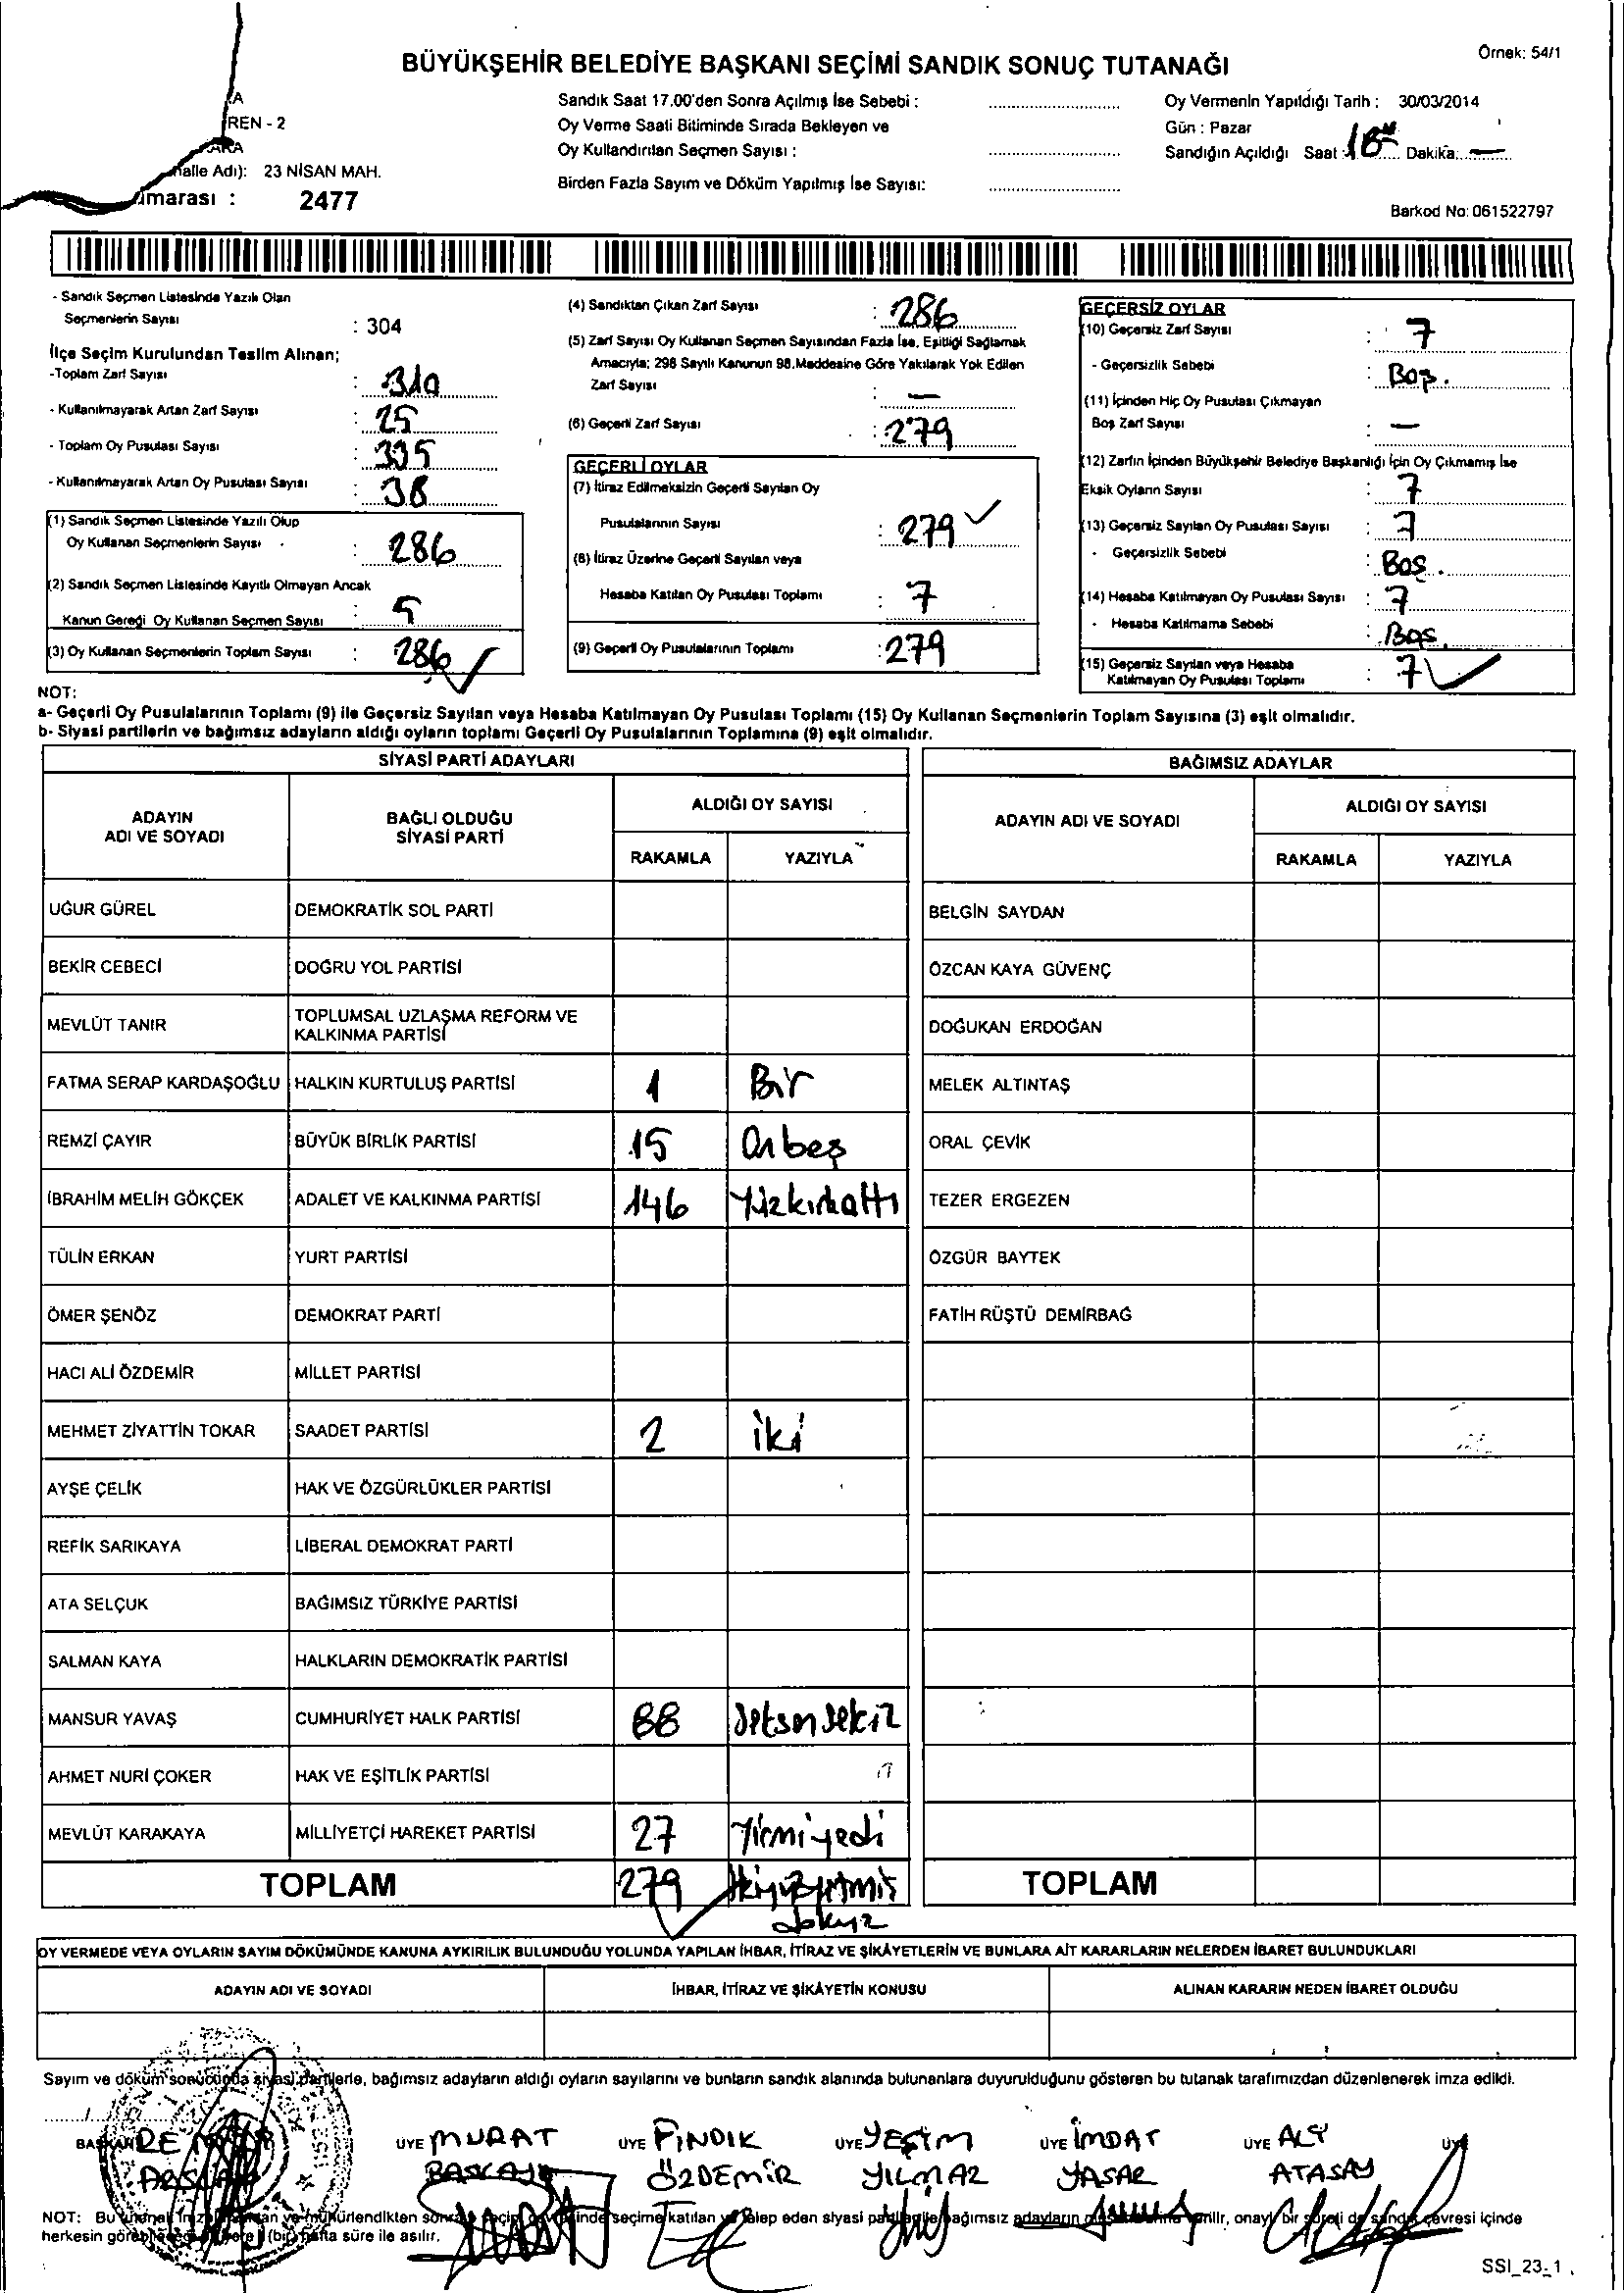 BÜYÜKŞEHİR BELEDİYE BAŞKANI SEÇİMİ SANDIK SONUÇ TUTANAĞI
Örnek: 54/1
REN - 2
23 NİSAN MAH.
2477
Sandık Saat 17.00'den Sonra Açılmış İse Sebebi :
Oy Verme Saati Bitiminde Sırada Bekleyen ve
Oy Kullandırılan Seçmen Sayısı :
Birden Fazla Sayım ve Döküm Yapılmış İse Sayısı:
Oy Vermenin Yapıldığı Tarih : 30/03/2014
Gün : Pazar
Sandığın Açıldığı Saat : Dakika: —
Barkod No: 061522797
- Sandık Seçmen Listesinde Yazılı Olan
Seçmenlerin Sayısı : 304
İlçe Seçim Kurulundan Teslim Alınan;
-Toplam Zarf Sayısı : 310
- Kullanılmayarak Artan Zarf Sayısı : 25
- Toplam Oy Pusulası Sayısı : 335
- Kullanılmayarak Artan Oy Pusulası Sayısı : 38
(1) Sandık Seçmen Listesinde Yazılı Olup
Oy Kullanan Seçmenlerin Sayısı : 286
(2) Sandık Seçmen Listesinde Kayıtlı Olmayan Ancak
Kanun Gereği Oy Kullanan Seçmen Sayısı : 5
(3) Oy Kullanan Seçmenlerin Toplam Sayısı : 286
(4) Sandıktan Çıkan Zarf Sayısı : 286
(5) Zarf Sayısı Oy Kullanan Seçmen Sayısından Fazla İse, Eşitliği Sağlamak
Amacıyla; 298 Sayılı Kanunun 98.Maddesine Göre Yakılarak Yok Edilen
Zarf Sayısı : —
(6) Geçerli Zarf Sayısı : 279
GEÇERLİ OYLAR
(7) İtiraz Edilmeksizin Geçerli Sayılan Oy
Pusulalarının Sayısı : 279
(8) İtiraz Üzerine Geçerli Sayılan veya
Hesaba Katılan Oy Pusulası Toplamı : 7
(9) Geçerli Oy Pusulalarının Toplamı : 279
GEÇERSİZ OYLAR
(10) Geçersiz Zarf Sayısı : 7
- Geçersizlik Sebebi : Boş.
(11) İçinden Hiç Oy Pusulası Çıkmayan
Boş Zarf Sayısı : —
(12) Zarfın İçinden Büyükşehir Belediye Başkanlığı İçin Oy Çıkmamış İse
Eksik Oyların Sayısı : 7
(13) Geçersiz Sayılan Oy Pusulası Sayısı : 7
- Geçersizlik Sebebi : Boş.
(14) Hesaba Katılmayan Oy Pusulası Sayısı : 7
- Hesaba Katılmama Sebebi : Boş
(15) Geçersiz Sayılan veya Hesaba
Katılmayan Oy Pusulası Toplamı : 7
NOT:
a- Geçerli Oy Pusulalarının Toplamı (9) ile Geçersiz Sayılan veya Hesaba Katılmayan Oy Pusulası Toplamı (15) Oy Kullanan Seçmenlerin Toplam Sayısına (3) eşit olmalıdır.
b- Siyasi partilerin ve bağımsız adayların aldığı oyların toplamı Geçerli Oy Pusulalarının Toplamına (9) eşit olmalıdır.
SİYASİ PARTİ ADAYLARI BAĞIMSIZ ADAYLAR
ADAYIN ADI VE SOYADI BAĞLI OLDUĞU SİYASİ PARTİ ALDIĞI OY SAYISI ADAYIN ADI VE SOYADI ALDIĞI OY SAYISI
RAKAMLA YAZIYLA RAKAMLA YAZIYLA
UĞUR GÜREL DEMOKRATİK SOL PARTİ BELGİN SAYDAN
BEKİR CEBECİ DOĞRU YOL PARTİSİ ÖZCAN KAYA GÜVENÇ
MEVLÜT TANIR TOPLUMSAL UZLAŞMA REFORM VE KALKINMA PARTİSİ DOĞUKAN ERDOĞAN
FATMA SERAP KARDAŞOĞLU HALKIN KURTULUŞ PARTİSİ 1 Bir MELEK ALTINTAŞ
REMZİ ÇAYIR BÜYÜK BİRLİK PARTİSİ 15 Onbeş ORAL ÇEVİK
İBRAHİM MELİH GÖKÇEK ADALET VE KALKINMA PARTİSİ 146 Yüzkırkaltı TEZER ERGEZEN
TÜLİN ERKAN YURT PARTİSİ ÖZGÜR BAYTEK
ÖMER ŞENÖZ DEMOKRAT PARTİ FATİH RÜŞTÜ DEMİRBAĞ
HACI ALİ ÖZDEMİR MİLLET PARTİSİ
MEHMET ZİYATTİN TOKAR SAADET PARTİSİ 2 iki
AYŞE ÇELİK HAK VE ÖZGÜRLÜKLER PARTİSİ
REFİK SARIKAYA LİBERAL DEMOKRAT PARTİ
ATA SELÇUK BAĞIMSIZ TÜRKİYE PARTİSİ
SALMAN KAYA HALKLARIN DEMOKRATİK PARTİSİ
MANSUR YAVAŞ CUMHURİYET HALK PARTİSİ 88 Seksensekiz
AHMET NURİ ÇOKER HAK VE EŞİTLİK PARTİSİ
MEVLÜT KARAKAYA MİLLİYETÇİ HAREKET PARTİSİ 27 Yirmiyedi
TOPLAM 279 ikiyüzyetmiş dokuz TOPLAM
OY VERMEDE VEYA OYLARIN SAYIM DÖKÜMÜNDE KANUNA AYKIRILIK BULUNDUĞU YOLUNDA YAPILAN İHBAR, İTİRAZ VE ŞİKÂYETLERİN VE BUNLARA AİT KARARLARIN NELERDEN İBARET BULUNDUKLARI
ADAYIN ADI VE SOYADI İHBAR, İTİRAZ VE ŞİKÂYETİN KONUSU ALINAN KARARIN NEDEN İBARET OLDUĞU
Sayım ve döküm sonucunda siyasi partilerle, bağımsız adayların aldığı oyların sayılarını ve bunların sandık alanında bulunanlara duyurulduğunu gösteren bu tutanak tarafımızdan düzenlenerek imza edildi.
BAŞKAN ÜYE MURAT ÜYE PINDIK ÜYE YEŞİM ÜYE İMDAT ÜYE ALİ ÜYE
ARSLAN BAŞKAYA ÖZDEMİR YILMAZ YAŞAR ATASAY
NOT: Bu mühürlendikten sonra seçime katılan ve talep eden siyasi bağımsız adayların verilir, onaylı bir sureti de sandık çevresi içinde
herkesin (bir) hafta süre ile asılır.
SSI_23_1